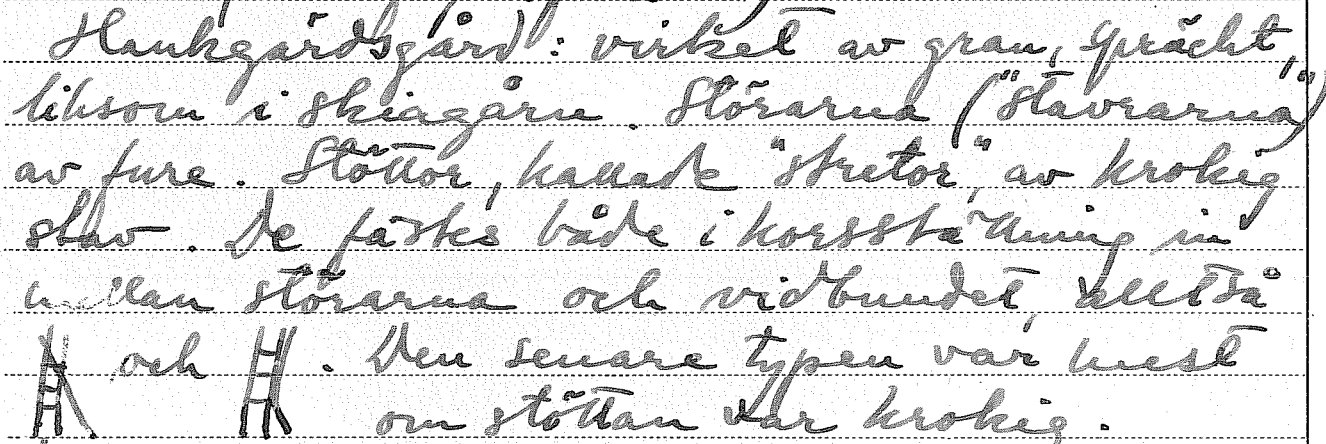 Hankgärdsgård: virket av gran, spräckt,
liksom i skiagårn. Störarna ("stavrarna")
av fure. Stöttor, kallade "stretor", av krokig
stav. De fästes både i korsställning in
mellan störarna och vidbundet, alltså
och . Den senare typen var mest
om stöttan var krokig.